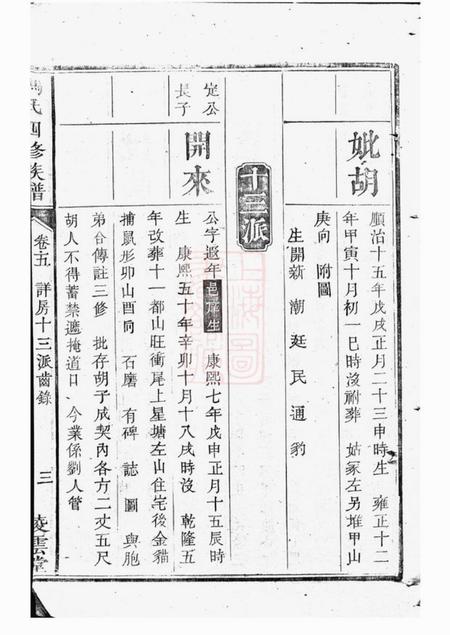 妣胡
順治十五年戊戌正月二十三申時生 雍正十二
年甲寅十月初一巳時沒祔葬 姑冢左另堆甲山
庚向 附圖
生開新 潮 廷 民 通 豹
十三派
定公
長子
開來
公字遐年邑庠生 康熙七年戊申正月十五辰時
生 康熙五十年辛卯十月十八戌時沒 乾隆五
年改葬十一都山旺衝尾上星塘左山住宅後金貓
捕鼠形卯山酉向 石磨 有碑 誌 圖 與胞
弟合傳註三修 批存胡子成契內各方二丈五尺
胡人不得蓄禁遮掩道口 今業係劉人管
氏四修族譜
卷十五 詳房十三派齒錄
三
凌雲堂